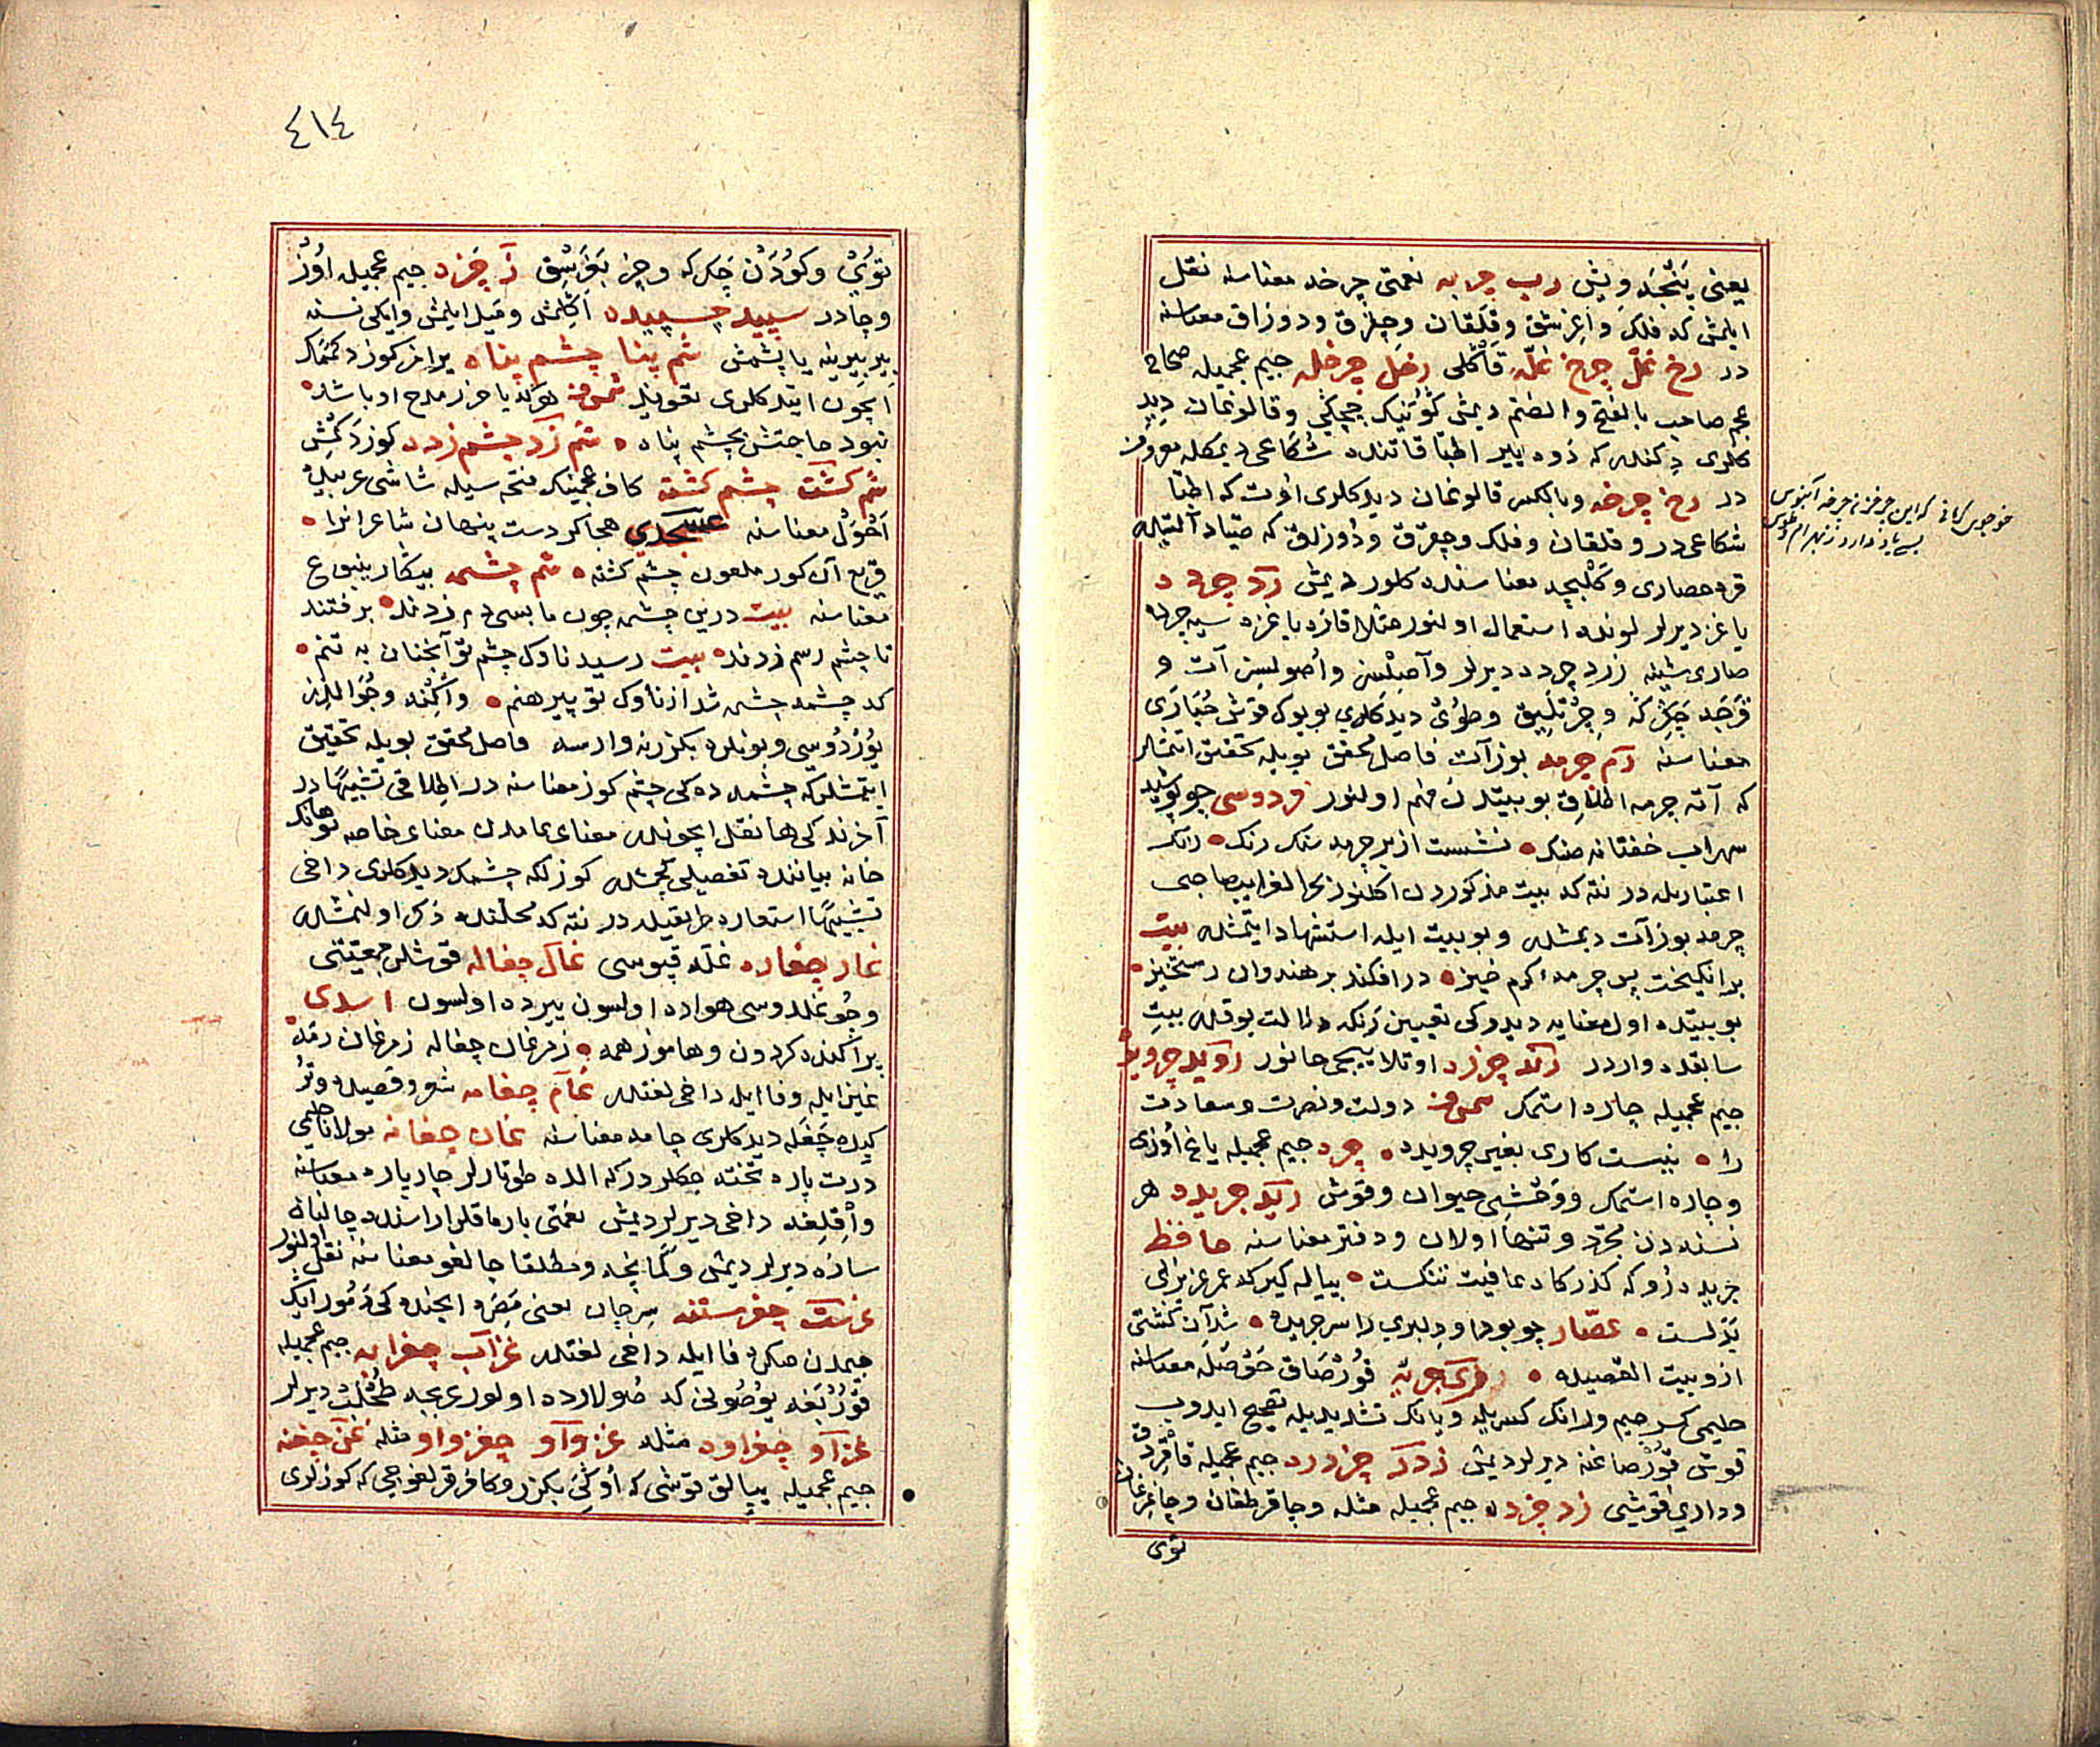 یعنی پنجه ویش رب چربه نعمتی چرخه معناسنه نقل
ایلمش که فلک و اغرشق وقلقان وچلرق ودوزاق معناسنه
در رخ غل چرخ غله قاکلی رخل چرخله جیم عجمیله صحاح
عجم صاحب بالفتح والضم دیمش چیچکی وقالوغان دید
کلری دکندر که دوه ییر اطبا قاتنده شکاعی دیمکله معروف
در رخ چرخه وبالعکس قالوغان دیدکلری اوت که اطبا
شکاعی در وقلقان وفلک وچقرق ودوزلق که صیاد آلتیله
قره حصاری وکلبچه معناسنده کلور دیمش رد چرده
یاغز دیرلر لونده استعمال اولنور مثلا قازه یاغزه سیه چرده
صاری شینه زرد چرده دیرلر وآصلش واصولیش آت و
معناسنه رم چرمه بوز آت فاصل محقق بویله تحقیق اتمشلر
که آته چرمه اطلاق بو بیتدن فهم اولنور فردوسی چو پوشید
سهراب خفتانه جنک نشست از بر چرمه سنک رنک رنک
اعتباریله در نته که بیت مذکوردن اکلنور بحر الغرایب صاحبی
چرمه بوز آت دیمشلر وبو بیت ایله استشهاد ایتمشلر بیت
برانکیخت پس چرمه کرم خیز درافکند بر هندوان رستخیز
بو بیتده اول معنایه دیدوکی تعیین رنکه دلالت یوقدر بیت
سابقده واردر زد چرزد اوتلاییجی جانور روید چروید
جیم عجمیله چاره استمک شمس فخر دولت ونصرت وسعادت
را نیست کاری بغیر چروید چرد جیم عجمیله یاغ اوزی
وچاره استمک ووحشی حیوان وقوش رید جریده هر
نسنه دن مجرد وتنها اولان ودفتر معناسنه حافظ
جریده رو که گذرگاه عافیت تنکست پیاله گیر که عمر عزیز بی
بدلست عصار چو بود او دلبری را سرجریده شد آن گشتی
ازو بیت القصیده ری جریه قورصاق حوصله معناسنه
حلیمی کسر جیم ورانک کسریله ویانک تشدیدیله تصحیح ایدوب
قوش قورصاغنه دیرلر دیمش زدر چزدره جیم عجمیله قاقردق
وداری قویشی زد چزده جیم عجمیله مثله وچاقر طقان وچاغرغان
توی
خوجوی کرمانی که این چرخ زنی چرخه آبنوس
بسی یاد دارد ز بهرام وطوس
٤١٤
توی وکودن چکرکه وچز بغرشق ز چزد جیم عجمیله اوز
وچادر سپید چسپیده اکلمش ومیل ایلمش وایکی نسنه
بیر بیرینه یاپشمش شم پنا چشم پناه یراخر کوز دکمک
ایچون ایتدکلری تعویذ شمس فخر هرکه یا حرز مدح او باشد
نبود حاجتش بچشم پناه شم زد چشم زده کوز دکمش
شم کشت چشم کشته کاف عجمینک فتحه سیله شاشی عربیده
احول معناسنه عسجدی هجا کردست پنهان شاعرانرا
قریع آن کور ملعون چشم کشته شم چشمه بیکار ینبوع
معناسنه بیت درین چشمه چون ما بسی دم زدند برفتند
تا چشم رسم زدند بیت رسید ناوک چشم تو آنچنان به تنم
که چشمه چشمه شد از ناوک تو پیرهنم واکنه وجوالدز
یوردوسی وبونلره بکزر نه وارسه فاصل محقق بویله تحقیق
ایتمشلرکه چشمه ده کی چشم کوز معناسنه در اطلاقی تشبیها در
آخرنده کی ها نقل ایچوندر معنای عامدن معنای خاصه بو هانک
خانه بیاننده تفصیلی کچمشدر کوزلکه چشمک دیدکلری داخی
تشبیها استعاره طریقیله در نته که محلنده ذکر اولنمشدر
غار چغاره غله قپوسی غال چغاله قوشلر جمعیتی
وجوغلدوسی هواده اولسون ییرده اولسون اسدی
پراکنده کردون وهاموز همه زمرغان چغاله زمرغان رمه
غین ایله وفا ایله داخی لغتدر غام چغامه شعر وقصیده وتر
کیده چغله دیدکلری چامه معناسنه غان چغانه مولانا حلیمی
درت پاره تخته جکلر درکه الده طوتارلر چارپاره معناسنه
واقلغه داخی دیرلر دیمش نعمتی بارماقلر اراسنده چالنان
سازه دیرلر دیمش وکمانچه ومطلقا چالغو معناسنه نقل اولنور
غرست چغرسته سرچان یعنی مصره ایچنده کی دمور ایک
جیمدن صکره فا ایله داخی لغتدر غزاب چغزابه جیم عجمیله
قوربغه یوصونی که صولرده اولور عربجه طحلب دیرلر
غزاو چغزاوه مثله غزواو چغزواو مثله غن چغنه
جیم عجمیله بیالق قوشی که اوکی بکزر وکافر قرلغوجی که کوزلری